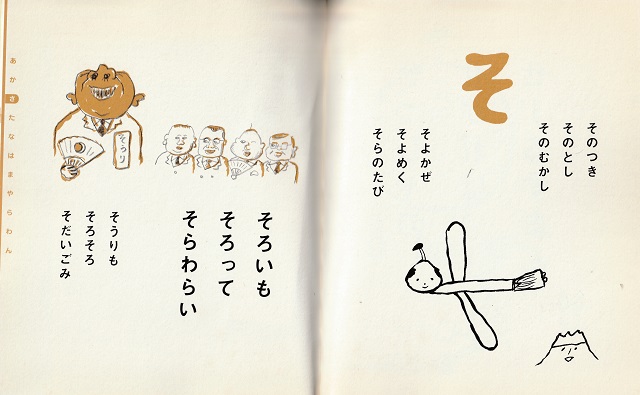 そ
そのつき
そのとし
そのむかし
そよかぜ
そよめく
そらのたび
そろいも
そろって
そらわらい
そうりも
そろそろ
そだいごみ
そうり
あかさたなはまやらわん